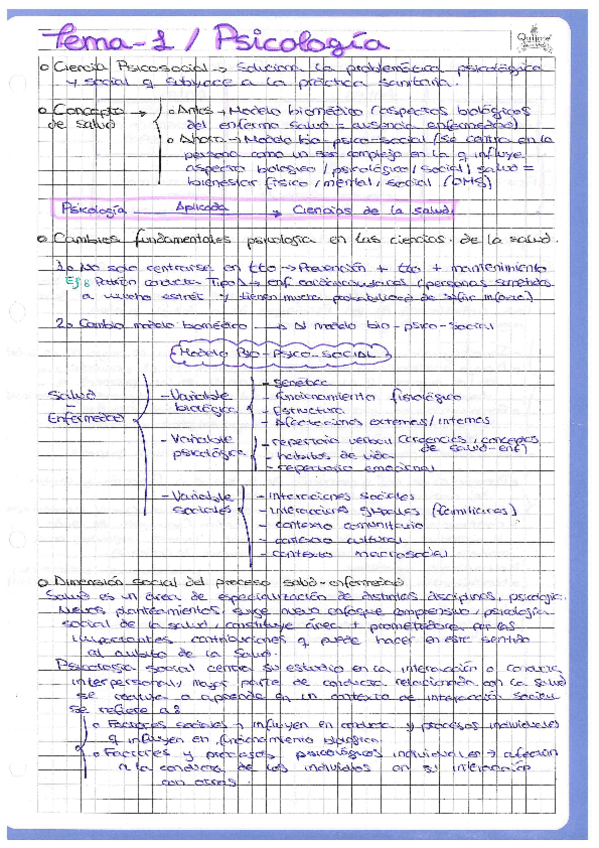 Tema-1 / Psicología
Quijote
o Ciencia Psicosocial → soluciona la problemática psicológica
y social q subyace a la práctica sanitaria.
o Concepto de salud → o Antes → Modelo biomédico (aspectos biológicos
del enfermo salud = ausencia enfermedad)
o Ahora → Modelo bio-psico-social (se centra en la
persona como un ser complejo en la q influye
aspecto biológico / psicológico / social / salud =
bienestar físico / mental / social (OMS)
Psicología Aplicada → Ciencias de la salud.
o Cambios fundamentales psicología en las ciencias de la salud.
1o No solo centrarse en tto → Prevención + tto + mantenimiento
Ej: Patrón conducta Tipo → enf cardiovasculares (personas sometidas
a mucho estrés y tienen mucha probabilidad de sufrir infarto)
2o Cambio modelo biomédico → al modelo bio-psico-social
Modelo BIO-PSICO-SOCIAL
Salud - Enfermedad
- Variable biológica
- Genética
- funcionamiento fisiológico
- Estructura
- afectaciones externas / internas
- Variable psicológica
- repertorio verbal (creencias, conceptos de salud-enf)
- hábitos de vida
- repertorio emocional
- Variable sociales
- interacciones sociales
- interacciones grupales (familiares)
- contexto comunitario
- contexto cultural
- contexto macrosocial
o Dimensión social del proceso salud-enfermedad
Salud es un área de especialización de distintas disciplinas, psicología.
Nuevos planteamientos, surge nuevo enfoque comprensivo, psicología
social de la salud, constituye área + prometedora por las
importantes contribuciones q puede hacer en este sentido
al ámbito de la salud.
Psicología social centra su estudio en la interacción o conducta
interpersonal, mayor parte de conducta relacionada con la salud
se realiza o aprende en un contexto de interacción social
se refiere a:
o Factores sociales → influyen en conducta y procesos individuales
q influyen en funcionamiento biológico.
o Factores y procesos psicológicos individuales → afectan
a la conducta de los individuos en su interacción
con otros.